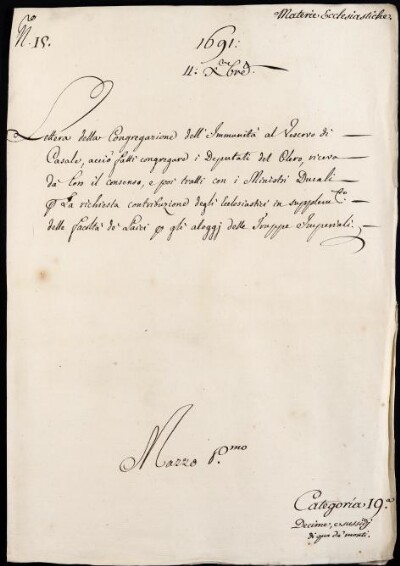 Materie Ecclesiastiche.
N.º 15.
1691:
11: Xbre
Lettera della Congregazione dell'Immunità al Vescovo di
Casale, acciò fatti congregare i Deputati del Clero, riceva
da loro il consenso, e poi tratti con i Ministri Ducali
p la richiesta contribuzione degli Ecclesiastici in supplem.to
delle facoltà de' Laici p gli aloggj delle Truppe Imperiali.
Mazzo P.mo
Categoria 19.a
Decime, e sussidj
di qua da' monti.